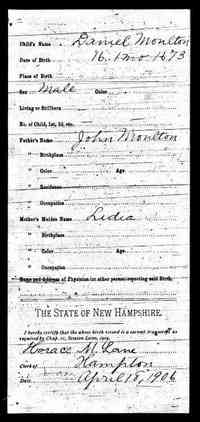 Child's Name Daniel Moulton
Date of Birth 16. 1 mo 1673
Place of Birth
Sex Male Color
Living or Stillborn
No. of Child, 1st, 2d, etc.
Father's Name John Moulton
" Birthplace
" Color Age
" Residence
" Occupation
Mother's Maiden Name Lidia
" Birthplace
" Color Age
" Occupation
Name and Address of Physician (or other person) reporting said Birth.
THE STATE OF NEW HAMPSHIRE.
I hereby certify that the above birth record is a correct transcript as
required by Chap. 21, Session Laws, 1905.
Horace M. Lane
Clerk of Hampton
Date April 18, 1906